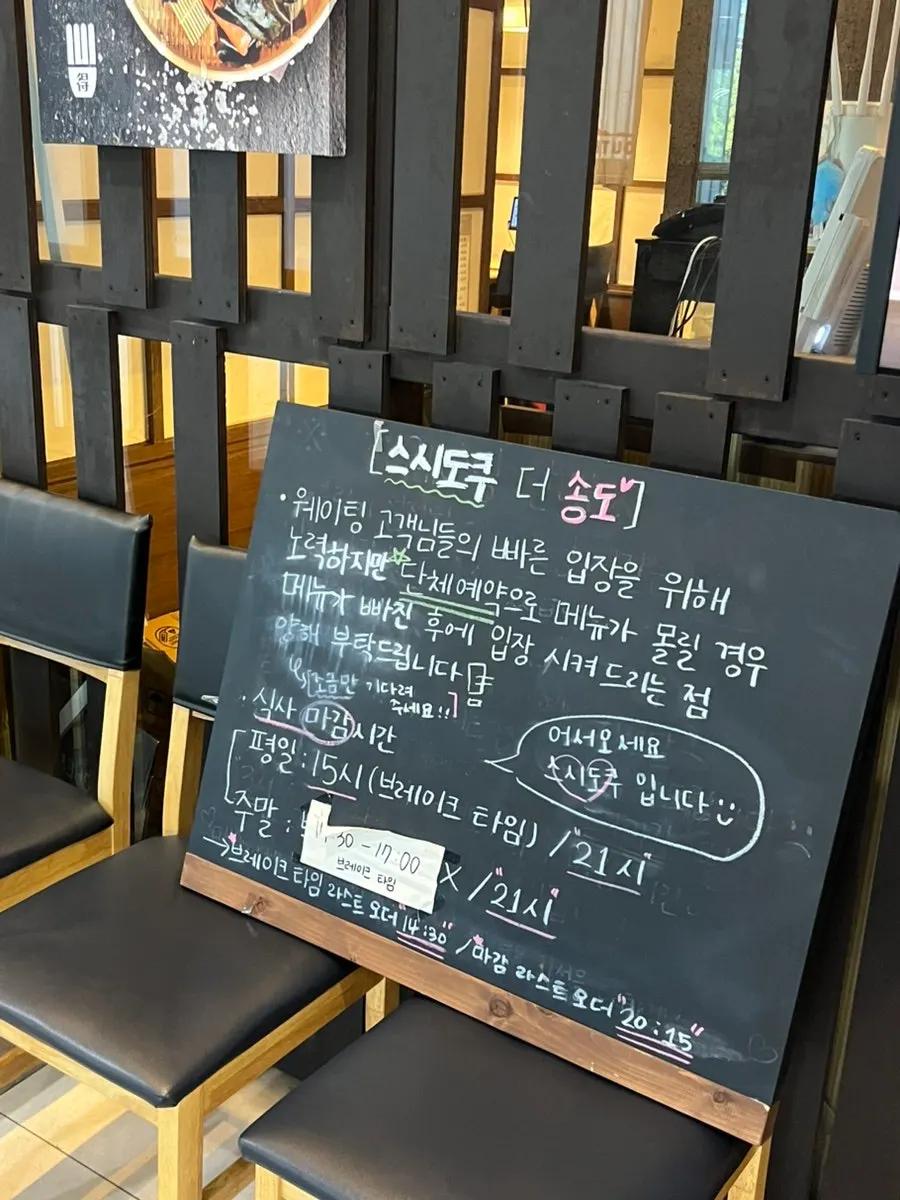 [스시도쿠 더 송도]
· 웨이팅 고객님들의 빠른 입장을 위해
노력하지만 단체예약으로 메뉴가 몰릴 경우
메뉴가 빠진 후에 입장 시켜 드리는 점
양해 부탁드립니다
[조금만 기다려
주세요!!]
· 식사 마감시간
평일 : 15시 (브레이크 타임) / "21시"
주말 :
:30 - 17:00
브레이크 타임
X / "21시"
→ 브레이크 타임 라스트 오더 "14:30" / 마감 라스트 오더 "20:15"
어서오세요
스시도쿠 입니다